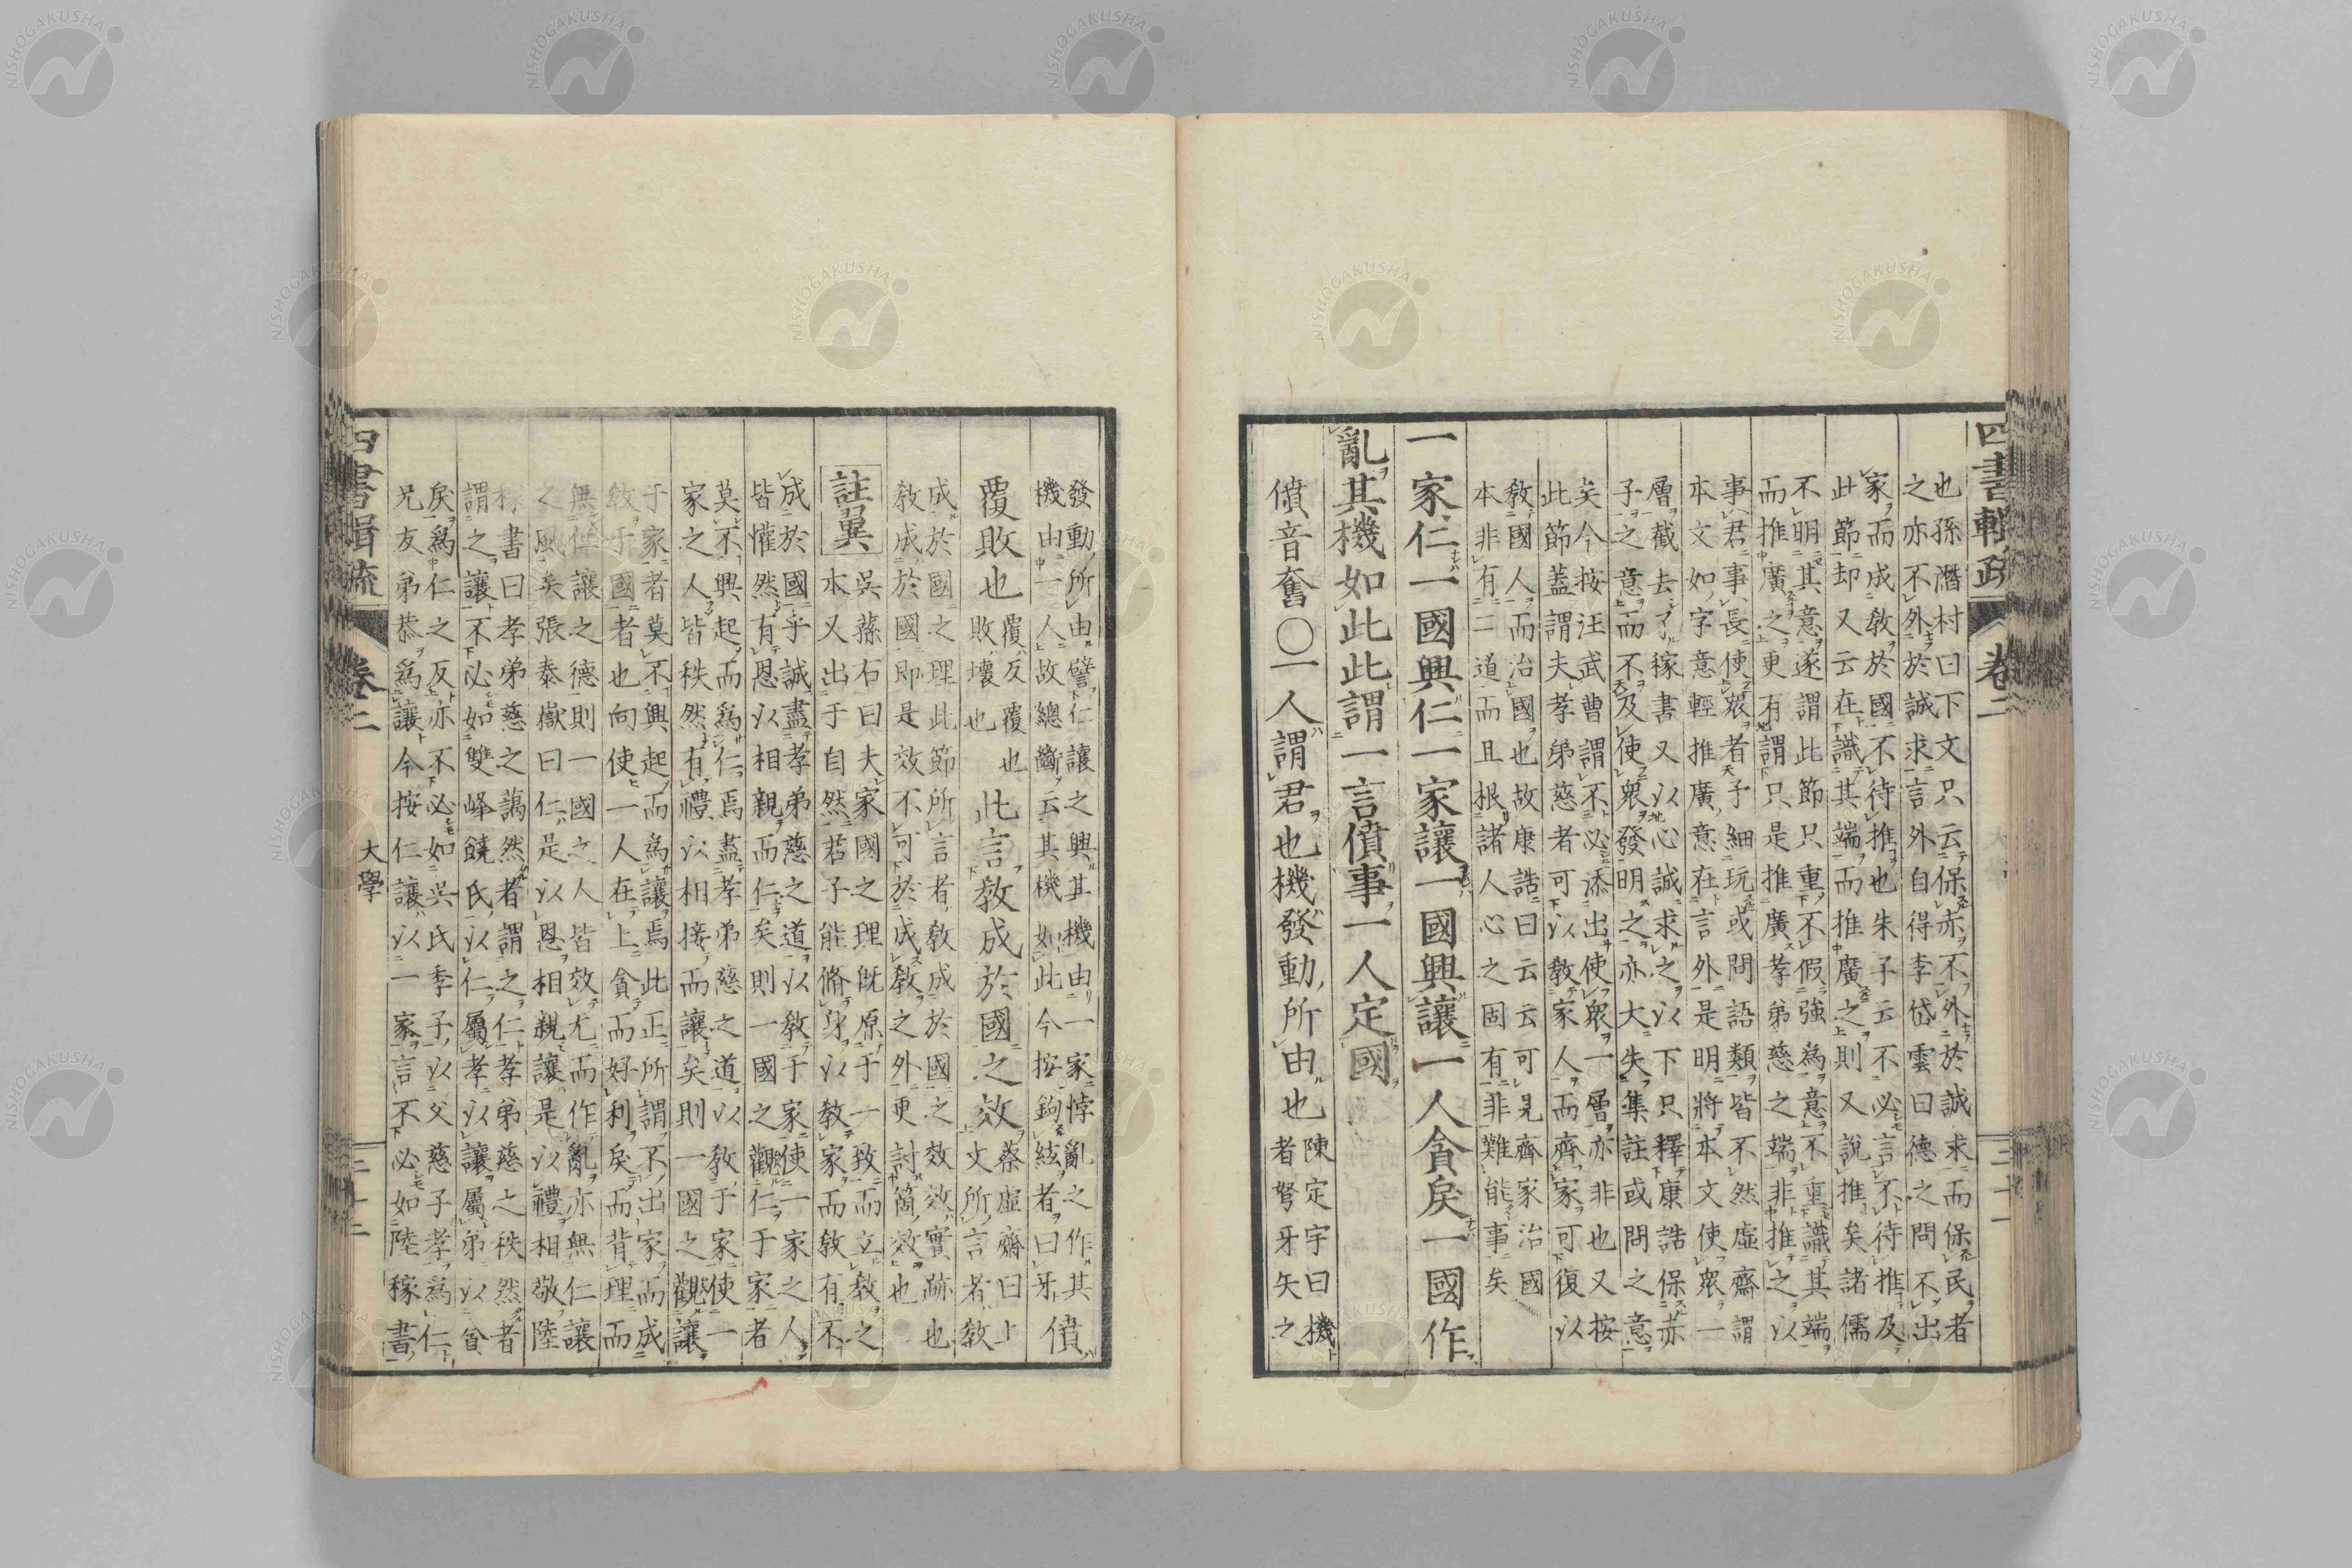 也孫潛村曰下文只云保赤不外於誠求而保民者
之亦不外於誠求言外自得李岱雲曰德之問不出
家而成教於國不待推也朱子云不必言不待推及
此節却又云在識其端而推廣之則又說推矣諸儒
不明其意遂謂此節只重不假強為意不重識其端
而推廣之更有謂只是推廣孝弟慈之端非推之以
事君事長使眾者予細玩或問語類皆不然虛齋謂
本文如字意輕推廣意在言外是明將本文使眾一
層截去了稼書又以心誠求之以下只釋康誥保赤
子之意而不及使眾發明之亦大失集註或問之意
矣今按汪武曹謂不必添出使眾一層亦非也又按
此節蓋謂夫孝弟慈者可以教家人而齊家可復以
教國人而治國也故康誥曰云云可見齊家治國
本非有二道而且根諸人心之固有非難能事矣
一家仁一國興仁一家讓一國興讓一人貪戾一國作
亂其機如此此謂一言僨事一人定國
僨音奮〇一人謂君也機發動所由也
陳定宇曰機
者弩牙矢之
發動所由譬仁讓之興其機由一家悖亂之作其
機由一人故總斷云其機如此今按鉤絃者曰牙
僨
覆敗也
覆反覆也
敗壞也
此言教成於國之效
蔡虛齋曰上
文所言者教
成於國之理此節所言者教成於國之效效實跡也
教成於國即是效不可於成教之外更討箇效也
註翼
吳蓀右曰夫家國之理既原于一致而立教之
本又出于自然君子能脩身以教家而教有不
成於國乎誠盡孝弟慈之道以教于家使一家之人
皆懽然有恩以相親而仁矣則一國之觀仁于家者
莫不興起而為仁焉盡孝弟慈之道以教于家使一
家之人皆秩然有禮以相接而讓矣則一國之觀讓
于家者莫不興起而為讓焉此正所謂不出家而成
教于國者也向使一人在上貪而好利戾而背理而
無仁讓之德則一國之人皆效尤而作亂亦無仁讓
之風矣張泰嶽曰仁是以恩相親讓是以禮相敬陸
稼書曰孝弟慈之藹然者謂之仁孝弟慈之秩然者
謂之讓不必如雙峰饒氏以仁屬孝以讓屬弟以貪
戾為仁之反亦不必如吳氏季子以父慈子孝為仁
兄友弟恭為讓今按仁讓以一家言不必如陸稼書
四書輯疏
卷二
大學
二十二